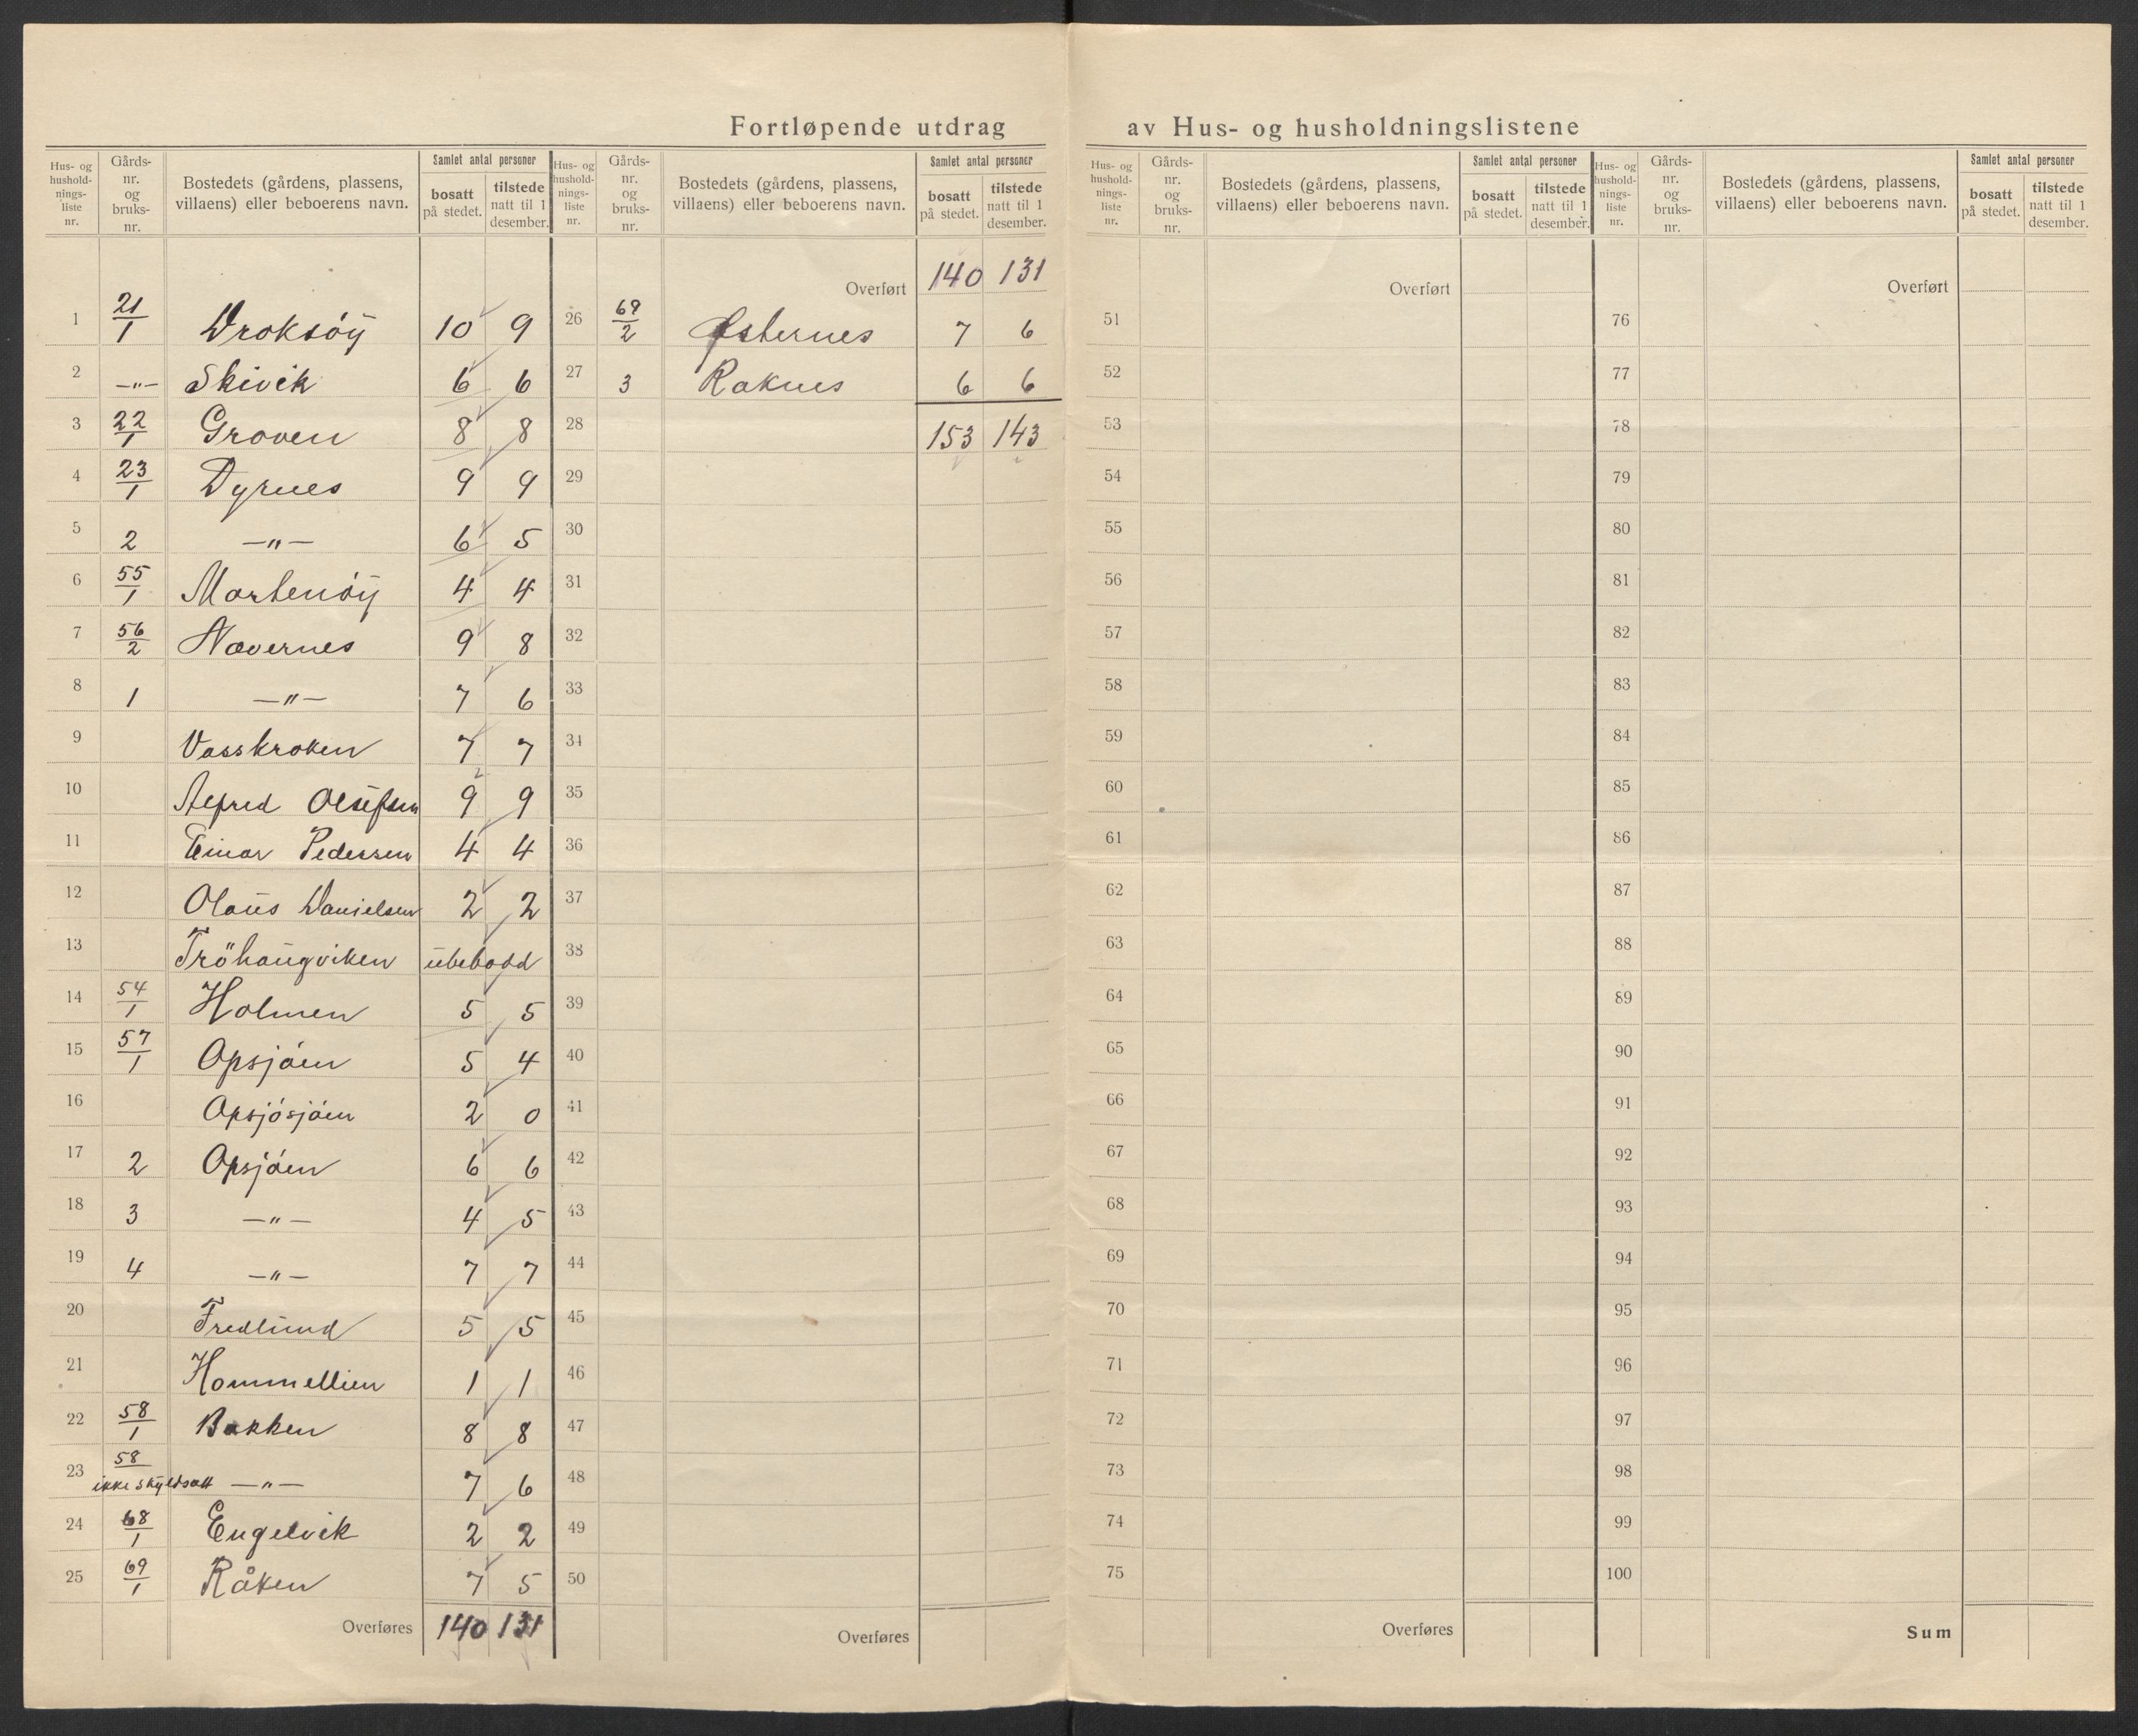 Fortløpende utdrag av Hus- og husholdningslistene
Hus- og hushold-nings-liste nr. Gårds-nr. og bruks-nr. Bostedets (gårdens, plassens, villaens) eller beboerens navn. Samlet antal personer bosatt på stedet. tilstede natt til 1 desember.
1 21/1 Droksöy 10 9
2 —"— Skivik 6 6
3 22/1 Groven 8 8
4 23/1 Dyrnes 9 9
5 2 —"— 6 5
6 55/1 Martenöy 4 4
7 56/2 Navernes 9 8
8 1 —"— 7 6
9 Vasskroken 7 7
10 Alfred Olufsen 9 9
11 Einar Pedersen 4 4
12 Olaus Danielsen 2 2
13 Tröhaugviken ubebodd
14 54/1 Holmen 5 5
15 57/1 Opsjöen 5 4
16 Opsjösjöen 2 0
17 2 Opsjöen 6 6
18 3 —"— 4 5
19 4 —"— 7 7
20 Fredlund 5 5
21 Hommellien 1 1
22 58/1 Bakken 8 8
23 58 ikke skyldsatt —"— 7 6
24 68/1 Engelvik 2 2
25 69/1 Råken 7 5
Overføres 140 131
Hus- og hushold-nings-liste nr. Gårds-nr. og bruks-nr. Bostedets (gårdens, plassens, villaens) eller beboerens navn. Samlet antal personer bosatt på stedet. tilstede natt til 1 desember.
Overført 140 131
26 69/2 Østernes 7 6
27 3 Raknes 6 6
28 153 143
29
30
31
32
33
34
35
36
37
38
39
40
41
42
43
44
45
46
47
48
49
50
Overføres
Hus- og hushold-nings-liste nr. Gårds-nr. og bruks-nr. Bostedets (gårdens, plassens, villaens) eller beboerens navn. Samlet antal personer bosatt på stedet. tilstede natt til 1 desember.
Overført
51
52
53
54
55
56
57
58
59
60
61
62
63
64
65
66
67
68
69
70
71
72
73
74
75
Overføres
Hus- og hushold-nings-liste nr. Gårds-nr. og bruks-nr. Bostedets (gårdens, plassens, villaens) eller beboerens navn. Samlet antal personer bosatt på stedet. tilstede natt til 1 desember.
Overført
76
77
78
79
80
81
82
83
84
85
86
87
88
89
90
91
92
93
94
95
96
97
98
99
100
Sum